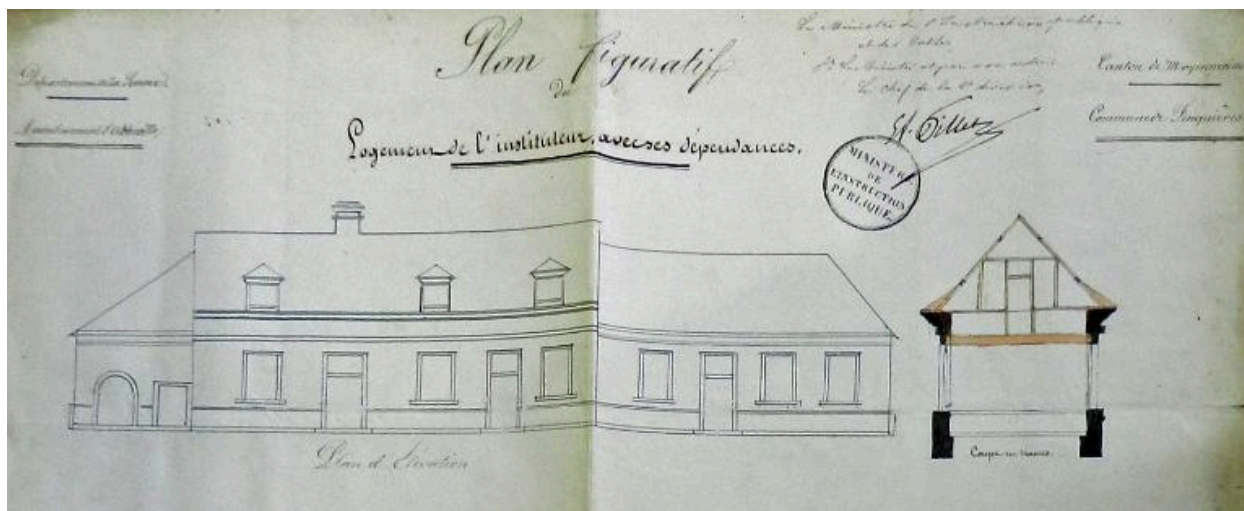 Plan figuratif
du
Logement de l'instituteur, avec ses dépendances.
Département de la Somme
Arrondissement d'Abbeville
Le Ministre de l'Instruction publique
et des Cultes
Le chef de la 2e division
MINISTÈRE
DE
L'INSTRUCTION
PUBLIQUE.
Canton de Moyenneville
Commune de
Plan d'Élévation
Coupe en travers.